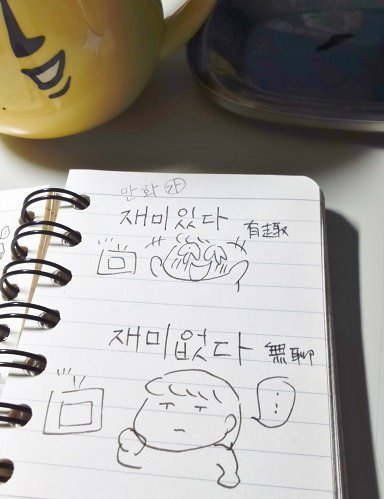 만화 가
재미있다 有趣
재미없다 無聊
...